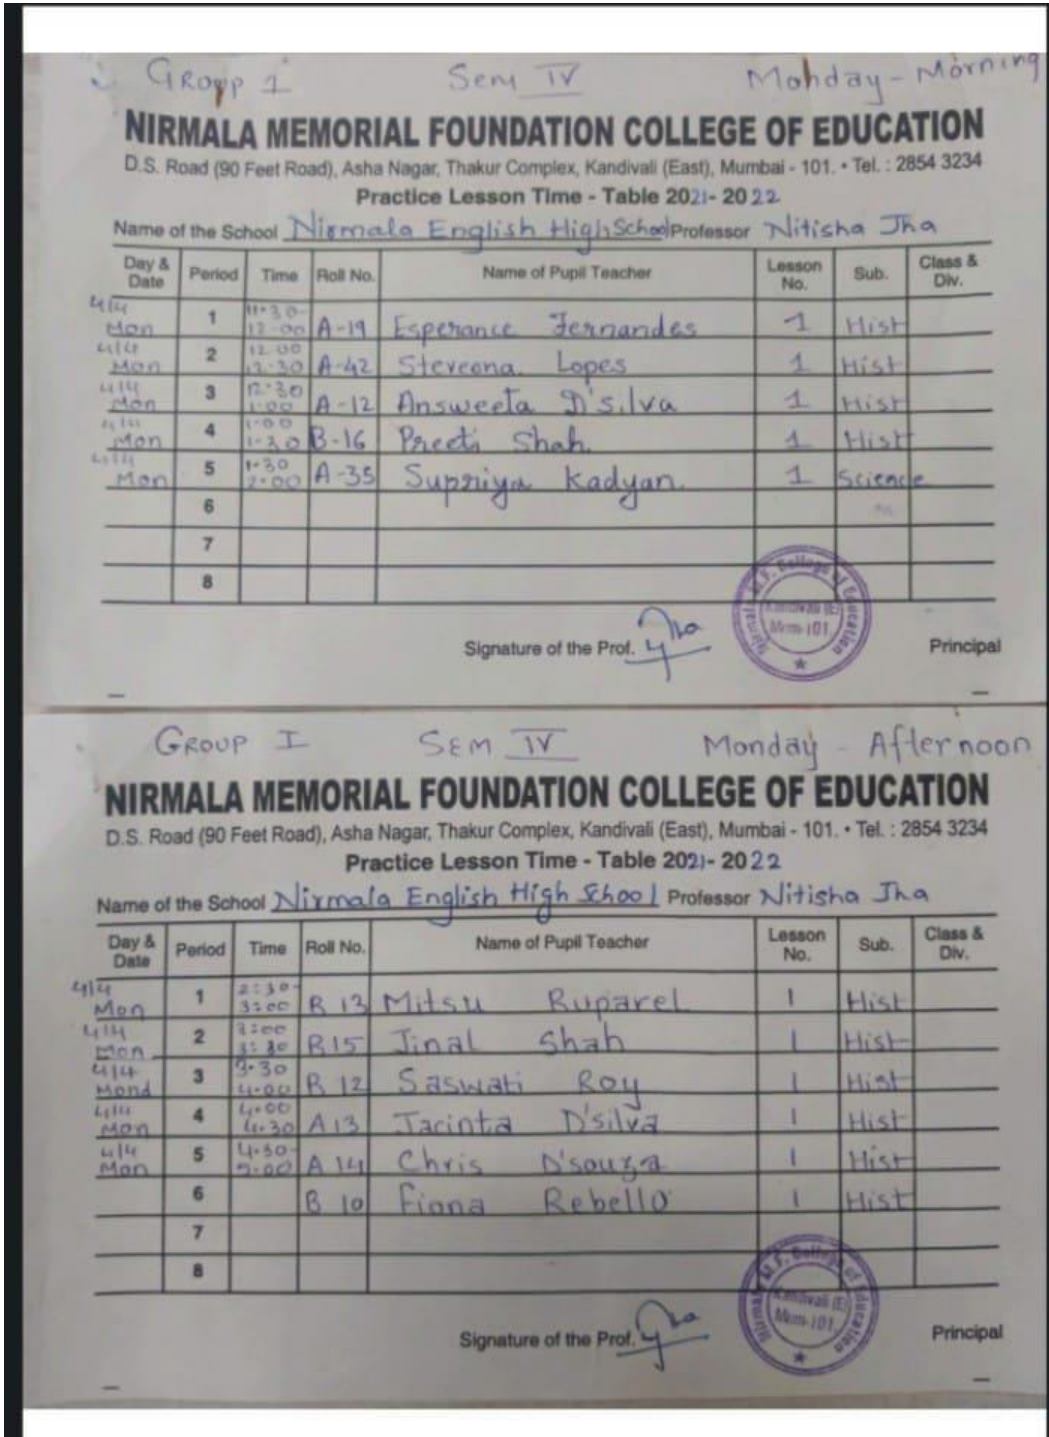 Group 1 Sem IV Monday - Morning
NIRMALA MEMORIAL FOUNDATION COLLEGE OF EDUCATION
D.S. Road (90 Feet Road), Asha Nagar, Thakur Complex, Kandivali (East), Mumbai - 101. • Tel. : 2854 3234
Practice Lesson Time - Table 2021-2022
Name of the School Nirmala English High School Professor Nitisha Jha
Day & Date Period Time Roll No. Name of Pupil Teacher Lesson No. Sub. Class & Div.
4/4 Mon 1 11.30-12.00 A-19 Esperance Fernandes 1 Hist
4/4 Mon 2 12.00 12.30 A-42 Steveena Lopes 1 Hist
4/4 Mon 3 12.30 1.00 A-12 Answeeta D'silva 1 Hist
4/4 Mon 4 1.00 1.30 B-16 Preeti Shah. 1 Hist
4/4 Mon 5 1.30 2.00 A-35 Supriya Kadyan. 1 Science
6
7
8
Nirmala M.F. College of Education
Kandivali (E)
Mum-101
Signature of the Prof. Jha Principal
GROUP I SEM IV Monday - Afternoon
NIRMALA MEMORIAL FOUNDATION COLLEGE OF EDUCATION
D.S. Road (90 Feet Road), Asha Nagar, Thakur Complex, Kandivali (East), Mumbai - 101. • Tel. : 2854 3234
Practice Lesson Time - Table 2021-2022
Name of the School Nirmala English High School Professor Nitisha Jha
Day & Date Period Time Roll No. Name of Pupil Teacher Lesson No. Sub. Class & Div.
4/4 Mon 1 2:30-3:00 B 13 Mitsu Ruparel 1 Hist
4/4 Mon 2 3:00 3:30 B15 Jinal Shah 1 Hist
4/4 Mond 3 3.30 4.00 B 12 Saswati Roy 1 Hist
4/4 Mon 4 4.00 4.30 A13 Jacinta D'silva 1 Hist
4/4 Mon 5 4.30-5.00 A 14 Chris D'souza 1 Hist
6 B 10 Fiona Rebello 1 Hist
7
8
Nirmala M.F. College of Education
Kandivali (E)
Mum-101
Signature of the Prof. Jha Principal